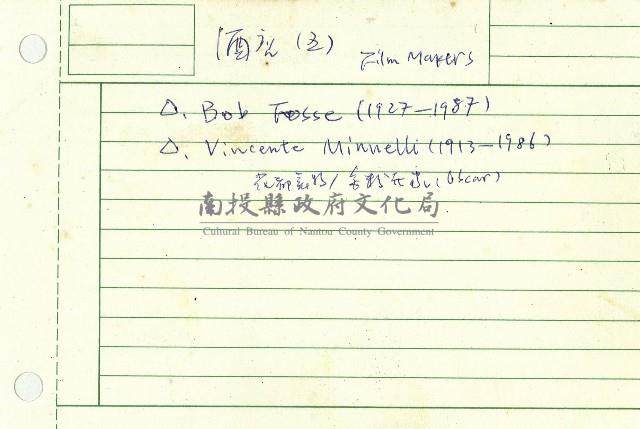 酒說(五) Film Makers
△. Bob Fosse (1927—1987)
△. Vincente Minnelli (1913—1986)
(Oscar)
南投縣政府文化局
Cultural Bureau of Nantou County Government